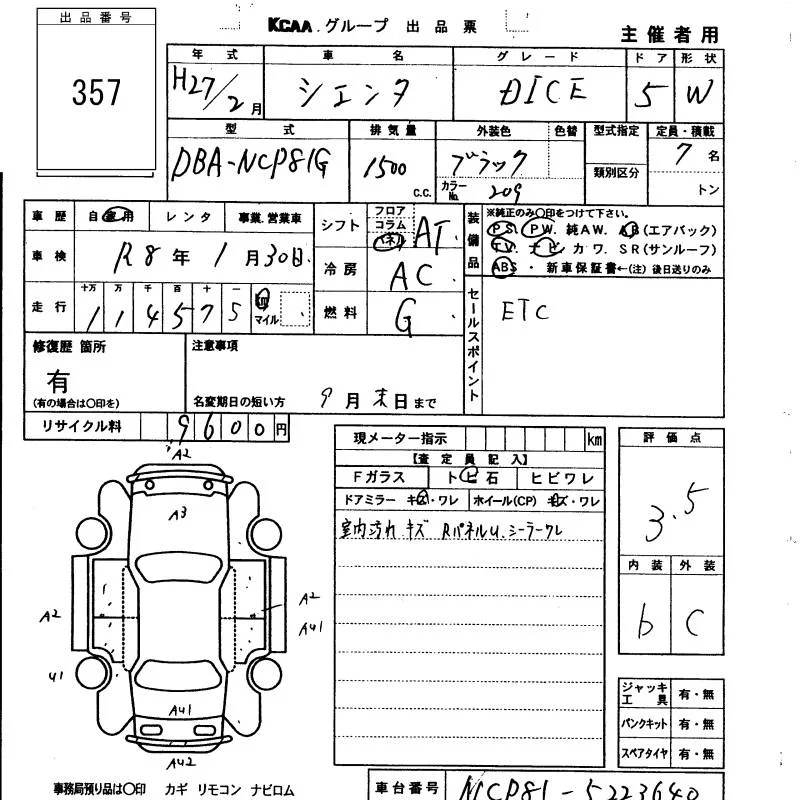 出品番号
357
KCAA.グループ 出品票
主催者用
年式 車名 グレード ドア 形状
H27/2月 シエンタ DICE 5 W
型式 排気量 外装色 色替 型式指定 定員・積載
DBA-NCP81G 1500 c.c. ブラック 7名
カラーNo. 209 類別区分 トン
車歴 自家用 レンタ 事業.営業車
車検 R8年1月30日
走行 十万 万 千 百 十 一 km マイル
114575
シフト フロア コラム AT
冷房 AC
燃料 G
装備品
※純正のみ○印をつけて下さい。
PS. PW. 純AW. AB(エアバック)
TV. ナビ カワ. SR(サンルーフ)
ABS・新車保証書←(注)後日送りのみ
セールスポイント
ETC
修復歴 箇所
有
(有の場合は○印を)
注意事項
名変期日の短い方 9月末日まで
リサイクル料 9600円
現メーター指示 km
【査定員記入】
Fガラス トビ石 ヒビワレ
ドアミラー キズ・ワレ ホイール(CP) キズ・ワレ
室内汚れ キズ RパネルU.シーラークレ
評価点
3.5
内装 外装
b C
A2
A3
A2
A2
A41
U1
A41
A42
ジャッキ工具 有・無
パンクキット 有・無
スペアタイヤ 有・無
事務局預り品は○印 カギ リモコン ナビロム
車台番号 NCP81-5223640